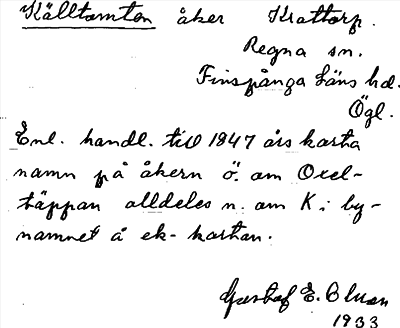 Källtomten åker Krattorp.
Regna sn.
Finspånga läns hd.
Ögl.
Enl. handl. till 1847 års karta
namn på åkern ö. om Oxel-
täppan alldeles n. om K i by-
namnet å ek-kartan.
Gustaf E.
1933